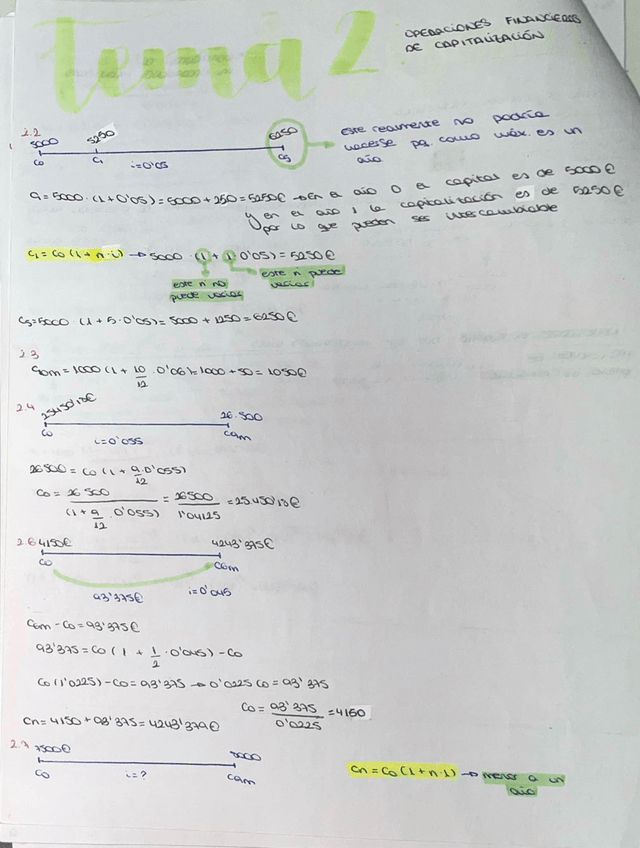 Tema 2
OPERACIONES FINANCIERAS
DE CAPITALIZACIÓN
2.2
5000 5250 6250
C0 C1 i=0'05 C5
este realmente no podría
hacerse pq. como máx. es un
año
C1=5000·(1+0'05)=5000+250=5250€ → En el año 0 el capital es de 5000€
y en el año 1 la capitalización es de 5250€
por lo que pueden ser intercambiable
C1=C0(1+n·i) → 5000·(1+1·0'05)=5250€
este n no puede variar
este n puede variar
C5=5000 (1+5·0'05)=5000+1250=6250€
2.3
C10m=1000(1+10/12·0'06)=1000+50=1050€
2.4
25450'13€ 26.500
C0 i=0'055 C9m
26500=C0(1+9/12·0'055)
C0=26500/(1+9/12·0'055)=26500/1'04125=25.450'13€
2.6 4150€ 4243'375€
C0 C6m
93'375€ i=0'045
C6m-C0=93'375€
93'375=C0(1+1/2·0'045)-C0
C0(1'0225)-C0=93'375 → 0'0225C0=93'375
C0=93'375/0'0225=4150
Cn=4150+93'375=4243'379€
2.7 7500€ 8000
C0 i=? C9m
Cn=C0(1+n·i) → menor a un
año